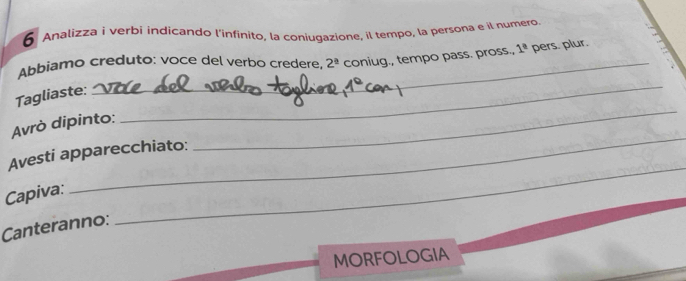 6 Analizza i verbi indicando l'infinito, la coniugazione, il tempo, la persona e il numero.
Abbiamo creduto: voce del verbo credere, 2ª coniug., tempo pass. pross., 1ª pers. plur.
Tagliaste: voce del verbo tagliare, 1° con,
Avrò dipinto:
Avesti apparecchiato:
Capiva:
Canteranno:
MORFOLOGIA